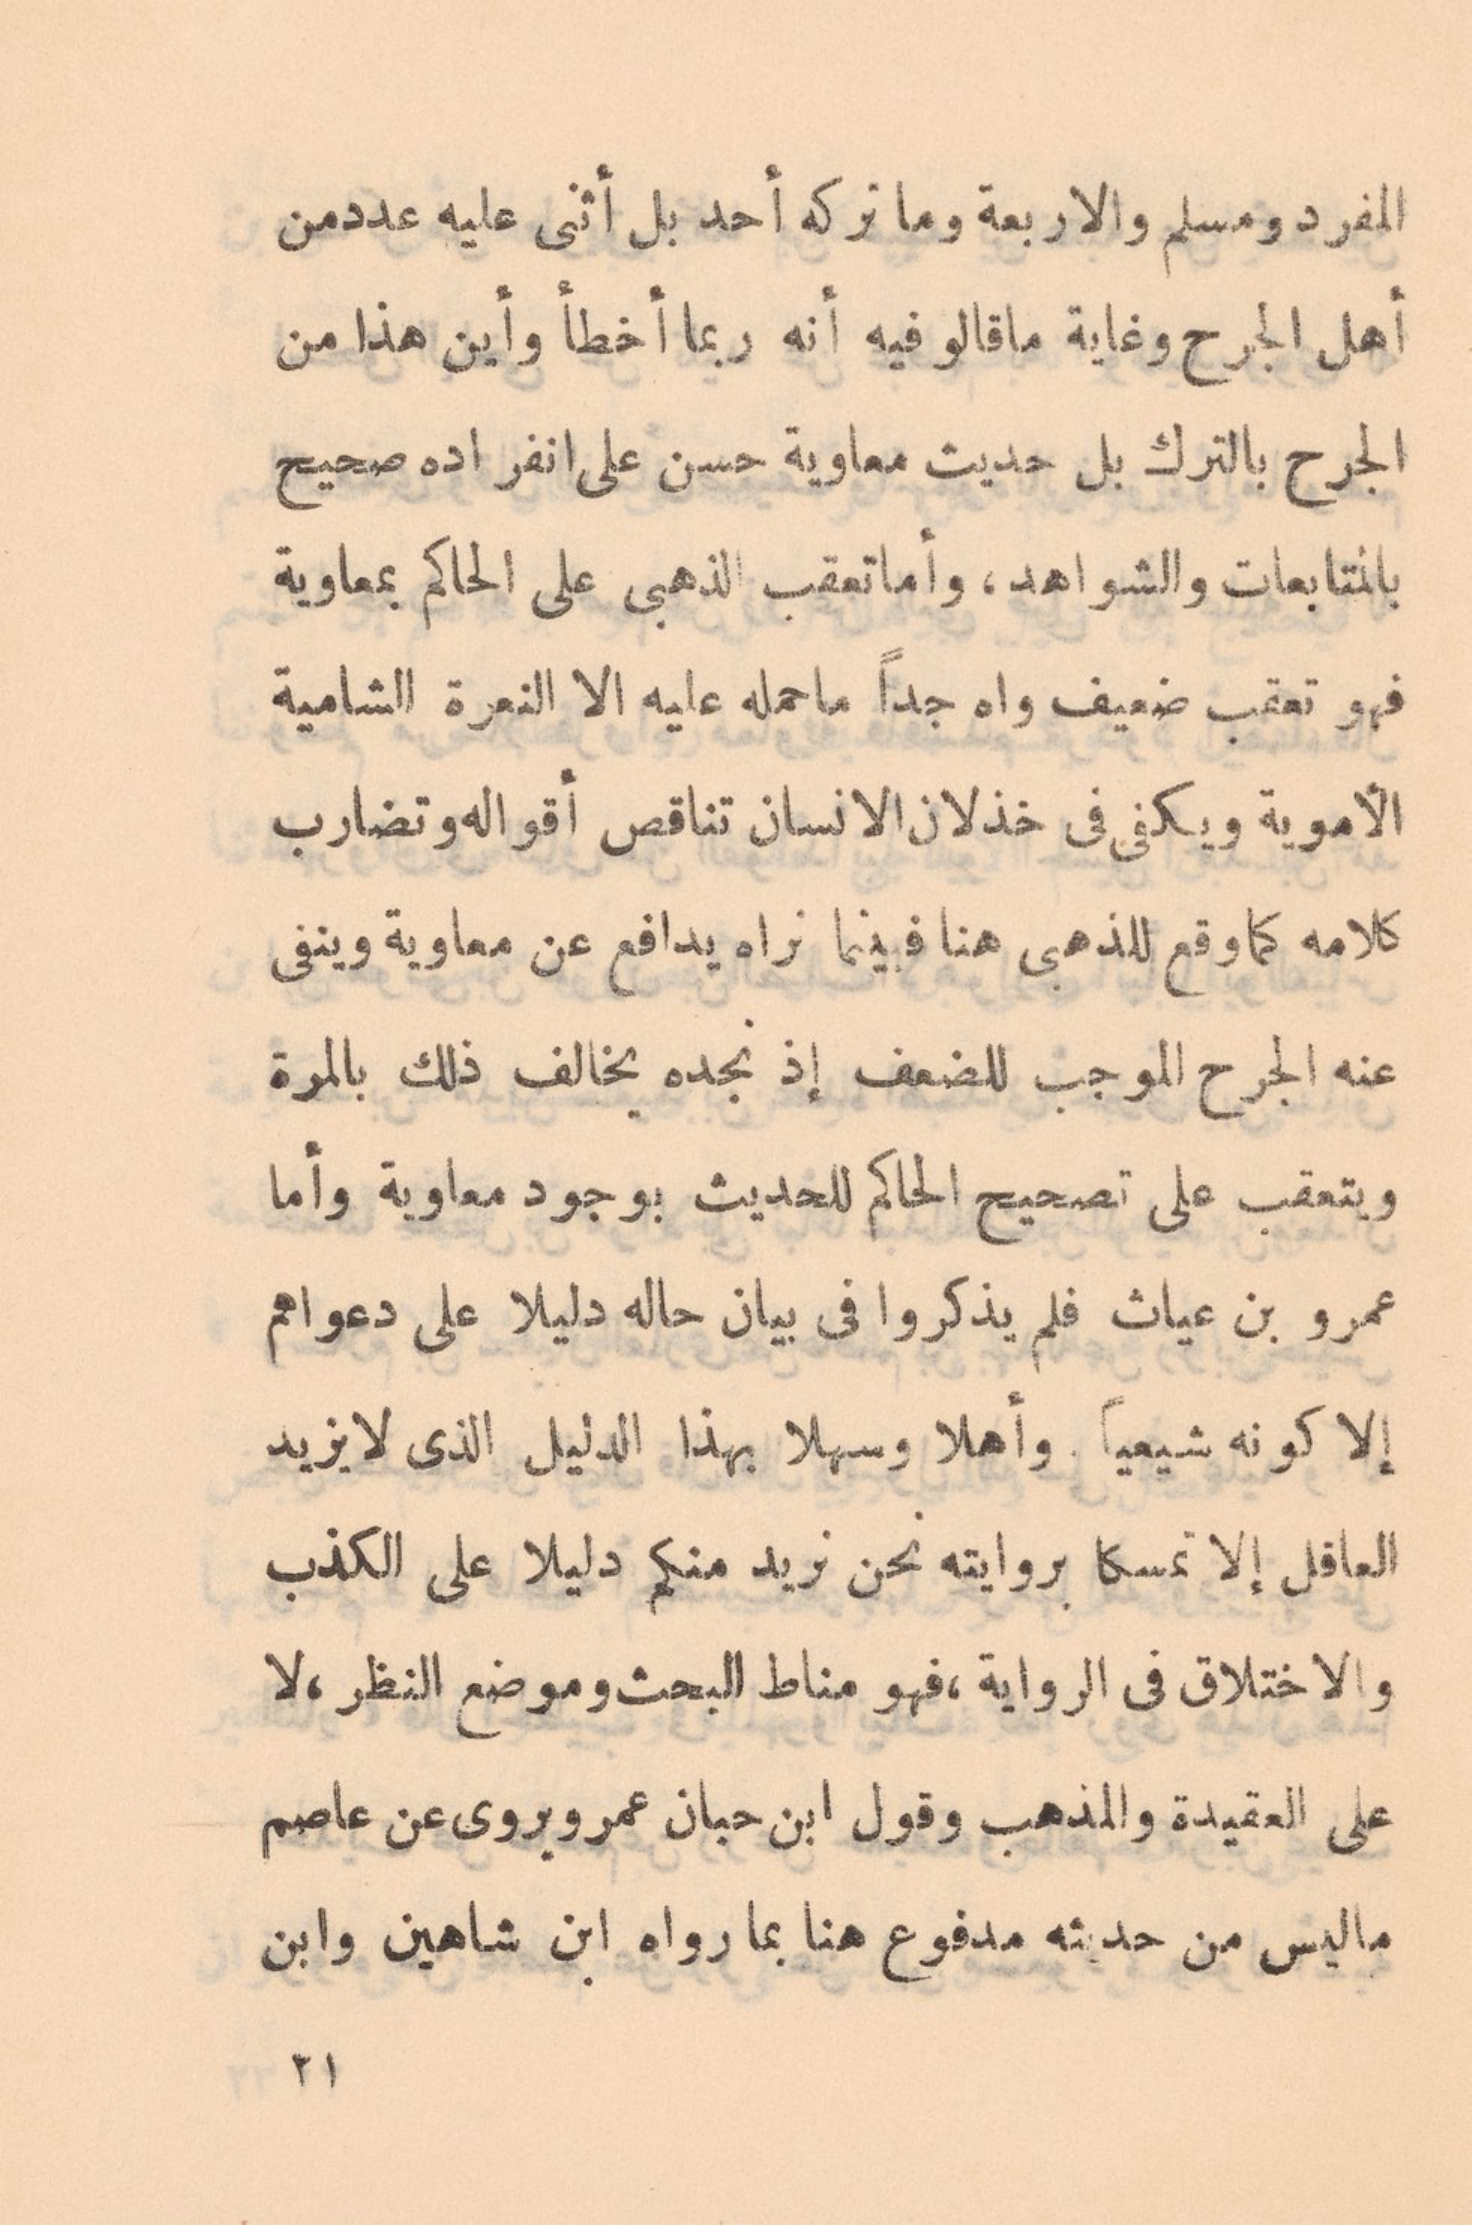 المفرد ومسلم والاربعة وما تركه أحد بل أثنى عليه عدد من
أهل الجرح وغاية ماقالو فيه أنه ربما أخطأ وأين هذا من
الجرح بالترك بل حديث معاوية حسن على انفراده صحيح
بالمتابعات والشواهد، وأما تعقب الذهبى على الحاكم بمعاوية
فهو تعقب ضعيف واه جداً ماحمله عليه الا النعرة الشامية
الأموية ويكفى فى خذلان الانسان تناقص أقواله وتضارب
كلامه كما وقع للذهبى هنا فبينما نراه يدافع عن معاوية وينفى
عنه الجرح الموجب للضعف إذ نجده يخالف ذلك بالمرة
ويتعقب على تصحيح الحاكم للحديث بوجود معاوية وأما
عمرو بن عياث فلم يذكروا فى بيان حاله دليلا على دعواهم
إلا كونه شيعياً. وأهلا وسهلا بهذا الدليل الذى لا يزيد
العاقل إلا تمسكا بروايته نحن نريد منكم دليلا على الكذب
والاختلاق فى الرواية ،فهو مناط البحث وموضع النظر ،لا
على العقيدة والمذهب وقول ابن حبان عمرو يروى عن عاصم
ماليس من حديثه مدفوع هنا بما رواه ابن شاهين وابن
٢١